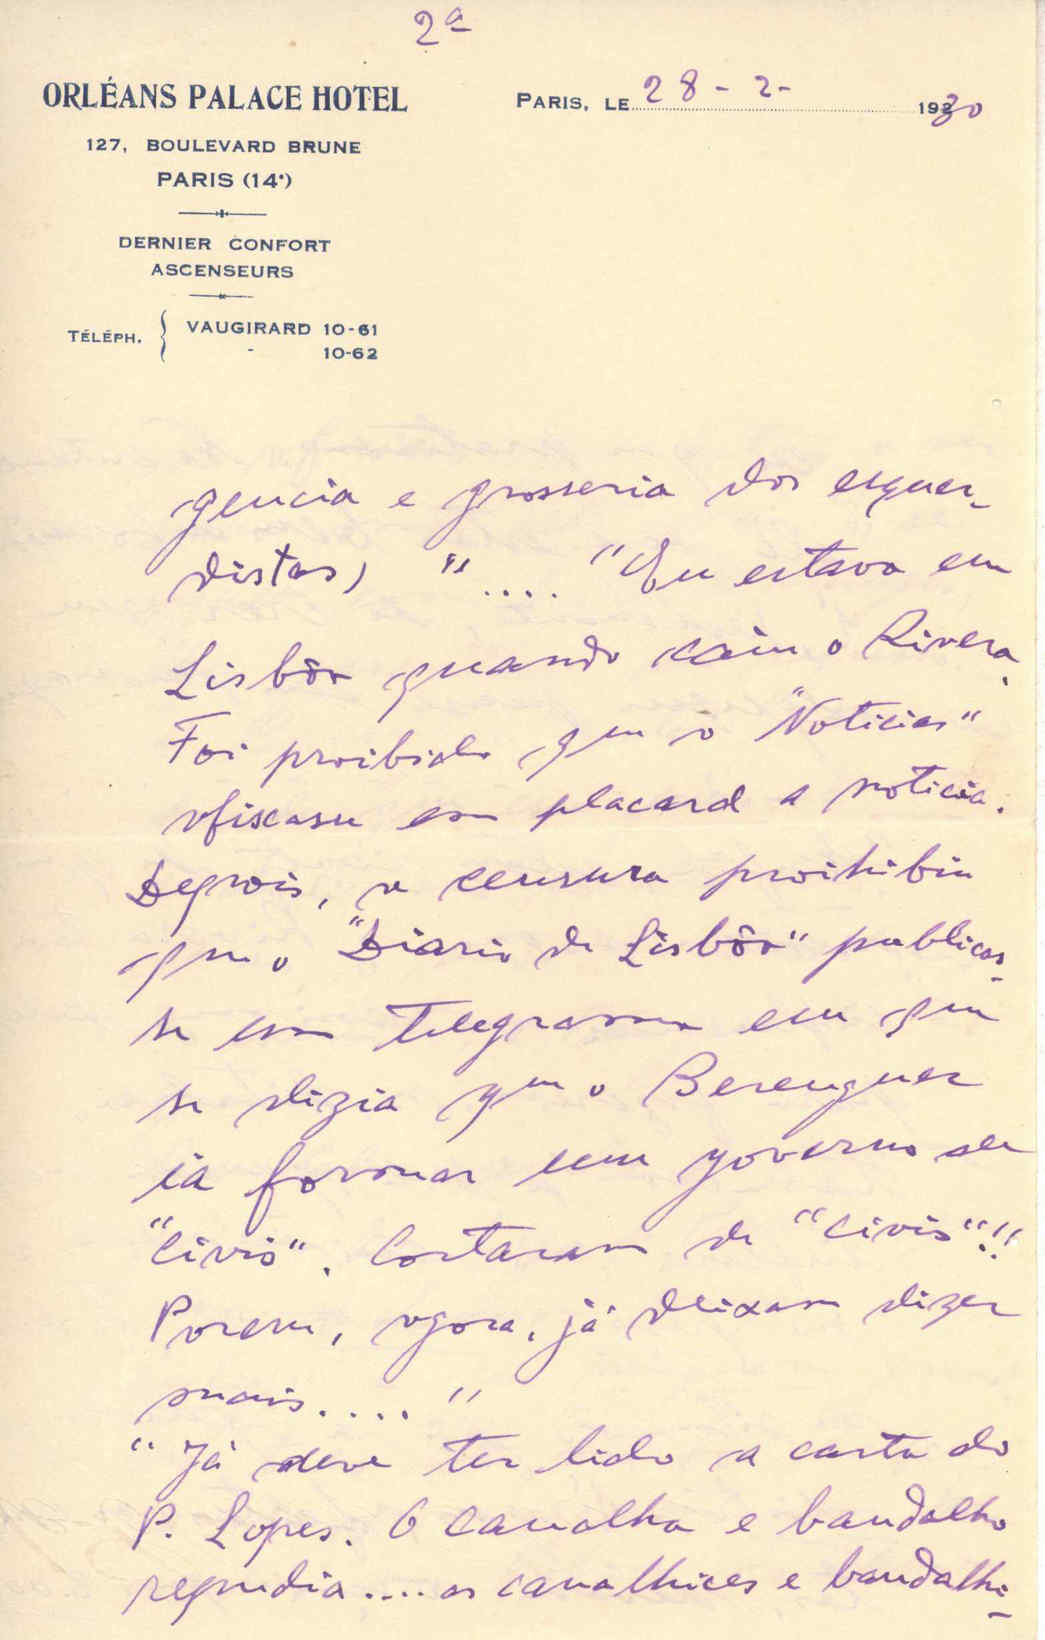 2ª
ORLÉANS PALACE HOTEL
PARIS, LE 28-2- 1930
127, BOULEVARD BRUNE
PARIS (14e)
DERNIER CONFORT
ASCENSEURS
TÉLÉPH. { VAUGIRARD 10-61
- 10-62
gencia e grosseria dos esquer-
distas) " .... "Eu estava em
Lisbôa quando caiu o Rivera.
Foi proibido que o "Noticias"
afixasse em placard a noticia.
Depois, a censura prohibiu
que o "Diario de Lisbôa" publicas-
se um telegrama em que
se dizia que o Berenguer
ia formar um governo de
"civis". Cortaram de "civis"!!
Porem, agora, já deixam dizer
mais...."
"Já deve ter lido a carta do
P. Lopes. O canalha e bandalho
repudia.... as canalhices e bandalhi-